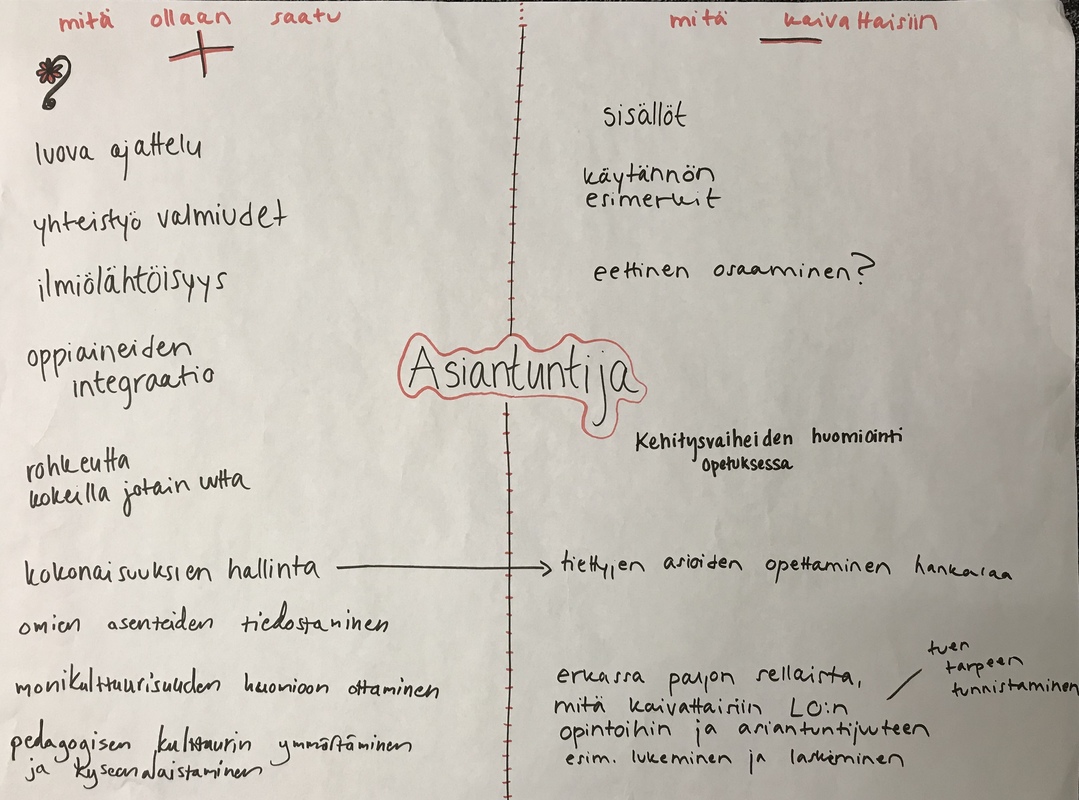 mitä ollaan saatu
+
luova ajattelu
yhteistyö valmiudet
ilmiölähtöisyys
oppiaineiden
integraatio
rohkeutta
kokeilla jotain utta
kokonaisuuksien hallinta
omien asenteiden tiedostaminen
monikulttuurisuuden huomioon ottaminen
pedagogisen kulttuurin ymmärtäminen
ja kyseenalaistaminen
Asiantuntija
mitä kaivattaisiin
sisällöt
käytännön
esimerkit
eettinen osaaminen?
Kehitysvaiheiden huomiointi
opetuksessa
tiettyjen asioiden opettaminen hankalaa
erkassa paljon sellaista,
mitä kaivattaisiin LO:n
opintoihin ja asiantuntijuuteen
esim. lukeminen ja laskeminen
tuen
tarpeen
tunnistaminen